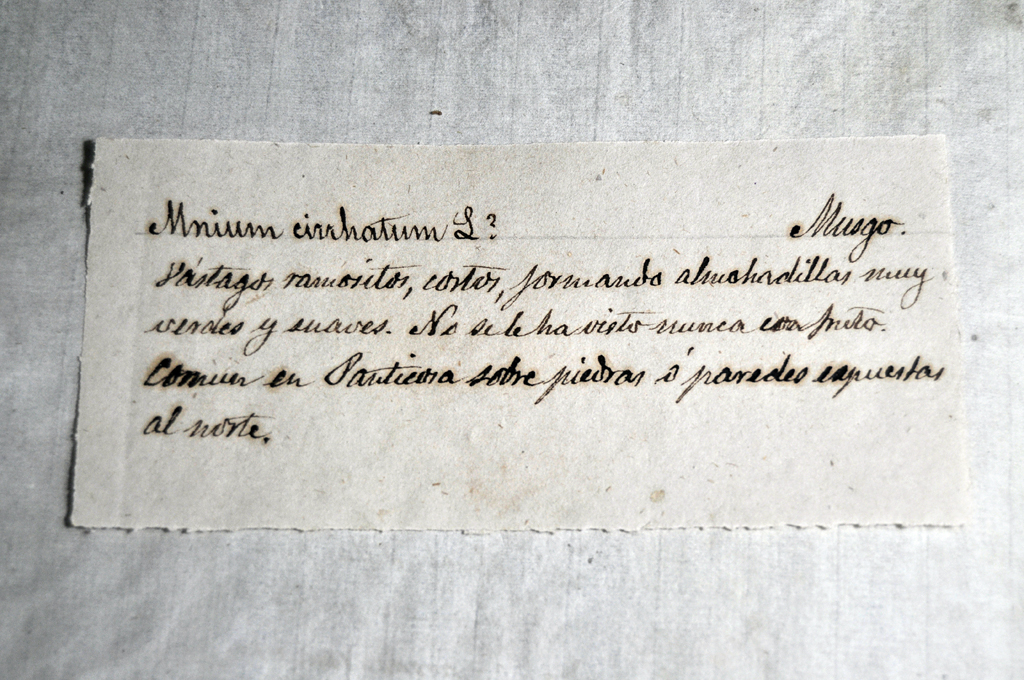 Mnium cirrhatum L? Musgo.
Vástagos ramositos, cortos, formando almohadillas muy
verdes y suaves. No se le ha visto nunca con fruto.
Comun en Panticosa sobre piedras ó paredes espuestas
al norte.